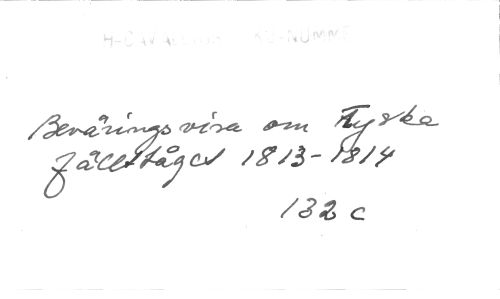 Beväringsvisa om Tyska
fälttåget 1813-1814
132 c